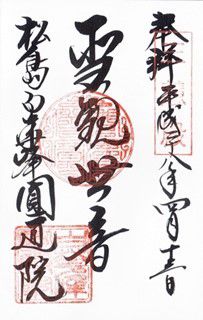 奉拝 平成二十八年四月十三日
聖観世音
松島 圓通院